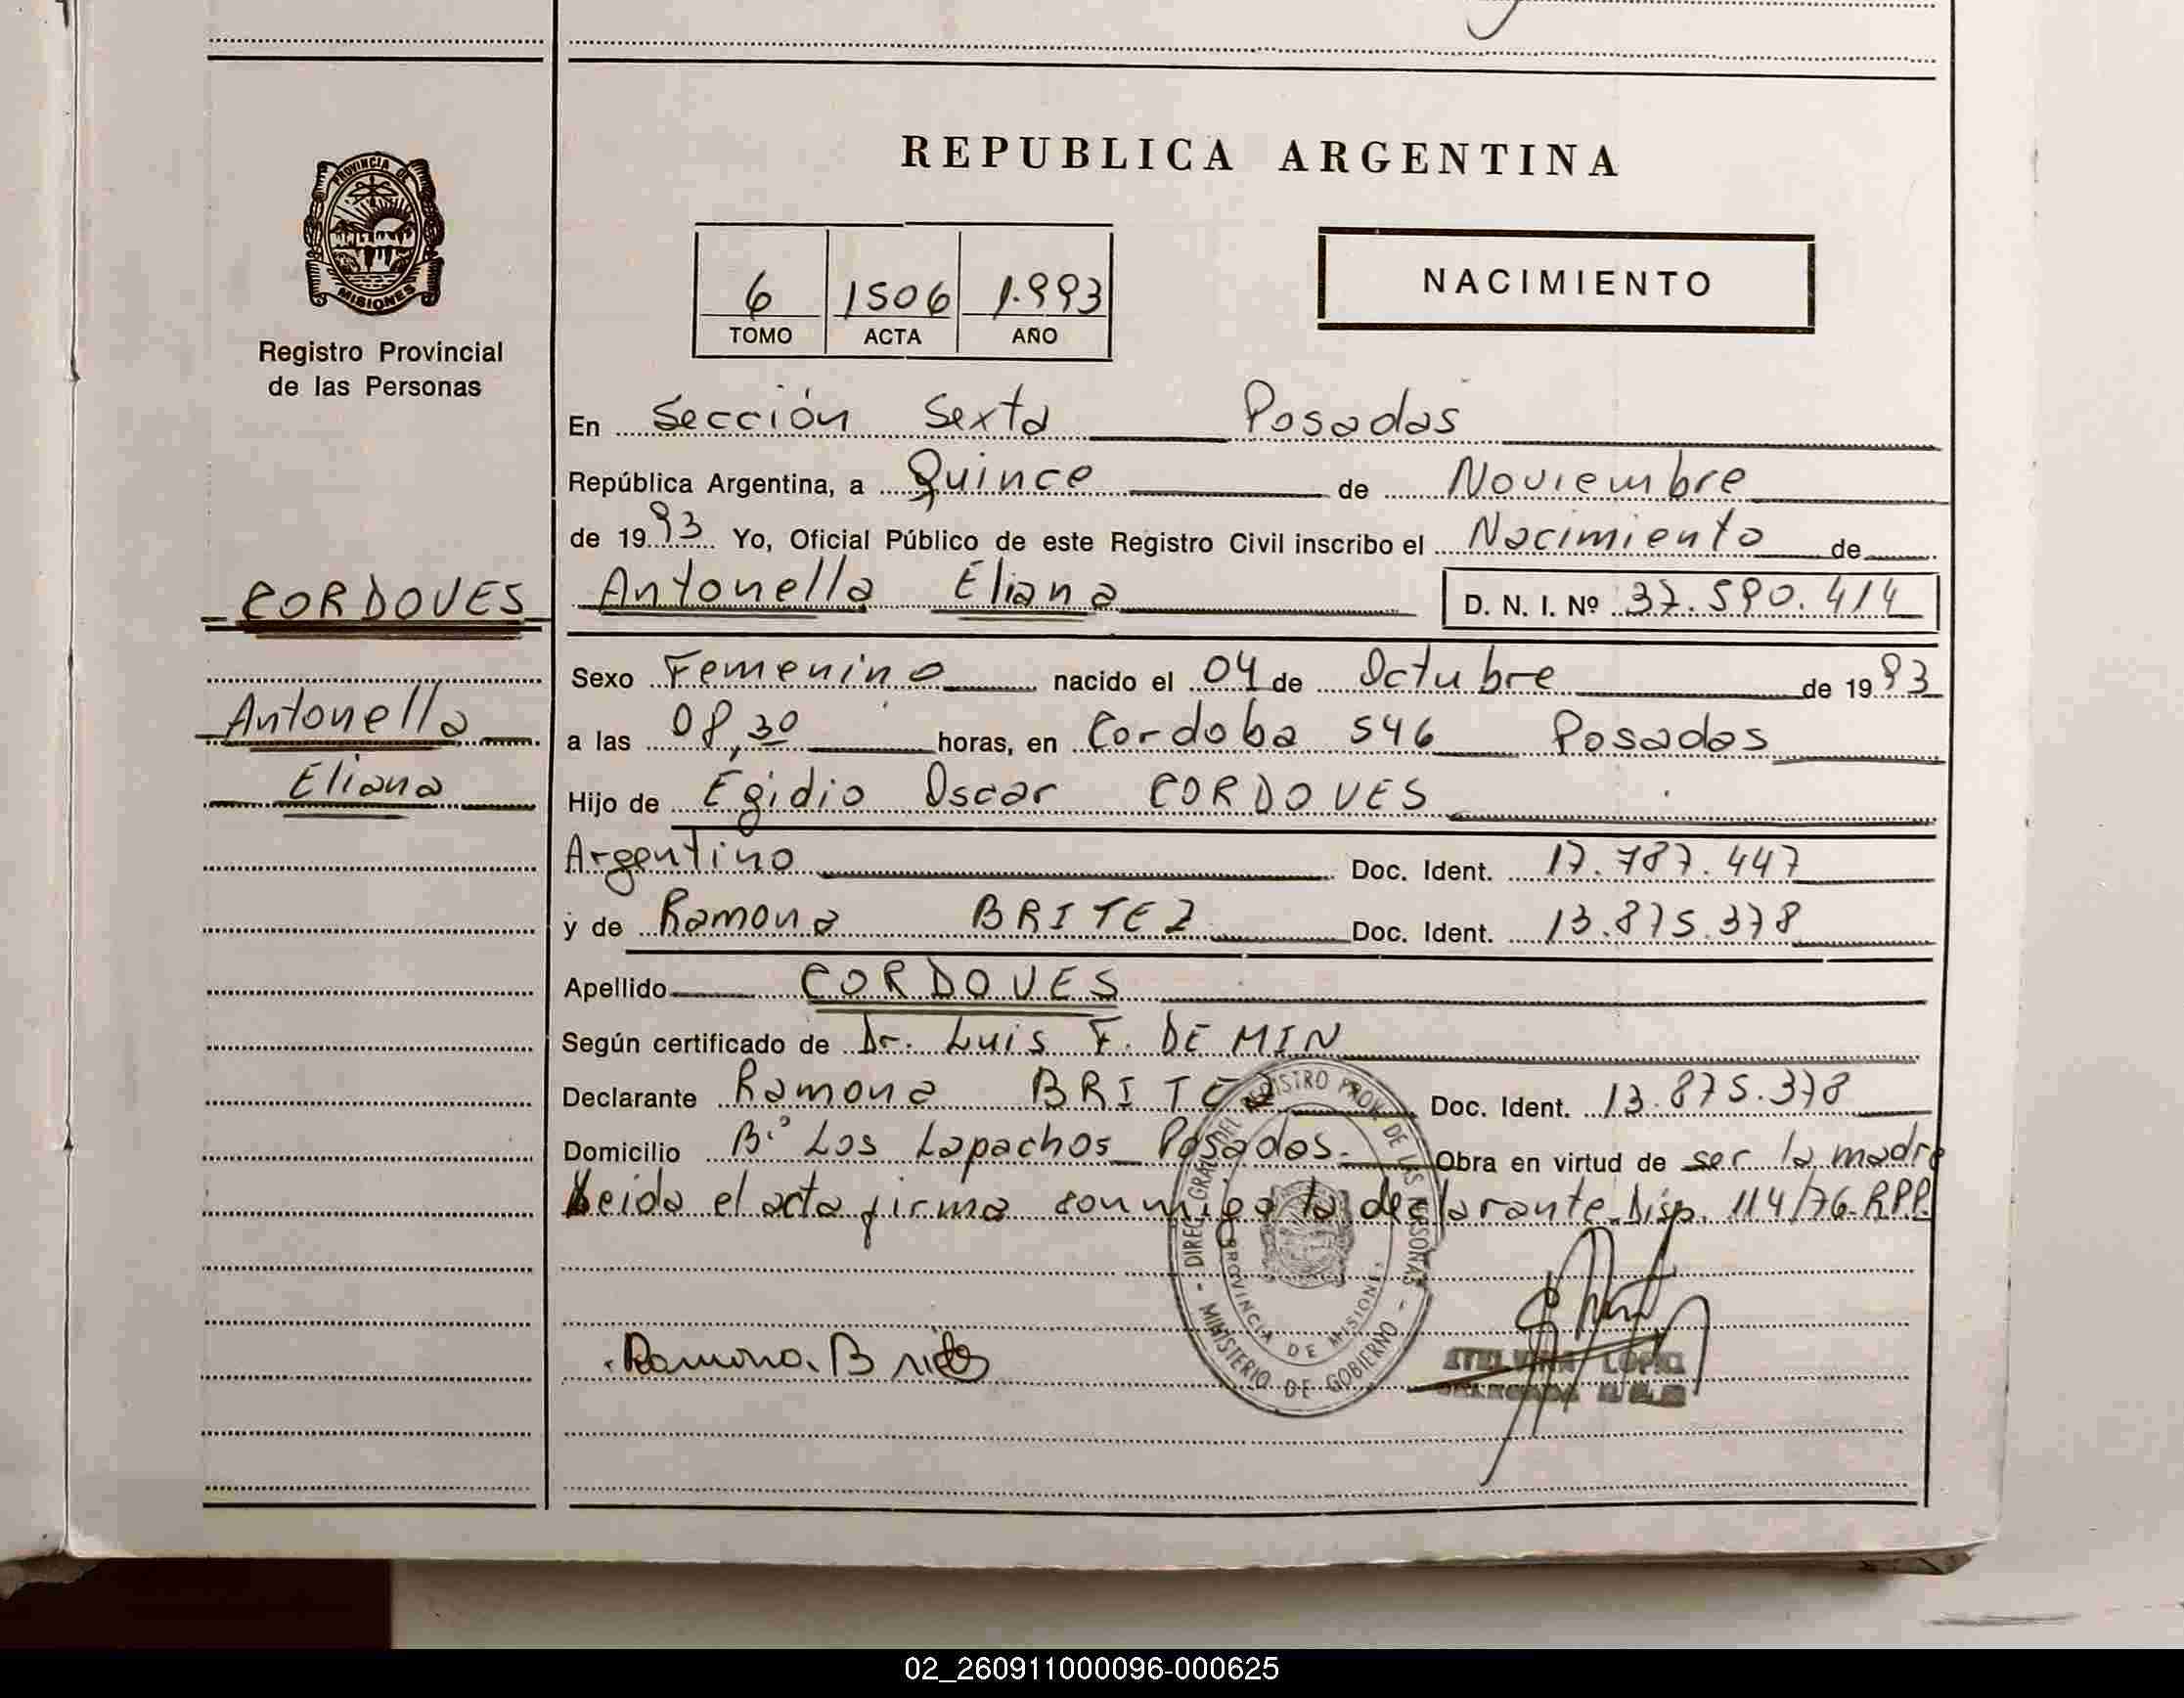 REPUBLICA ARGENTINA
PROVINCIA DE
MISIONES
Registro Provincial
de las Personas
6 1506 1.993
TOMO ACTA AÑO
NACIMIENTO
En Sección Sexta Posadas
República Argentina, a Quince de Noviembre
de 1993 Yo, Oficial Público de este Registro Civil inscribo el Nacimiento de
CORDOVES
Antonella Eliana D. N. I. Nº 37.590.414
Sexo Femenino nacido el 04 de Octubre de 1993
Antonella
a las 08,30 horas, en Cordoba 546 Posadas
Eliana
Hijo de Egidio Oscar CORDOVES
Argentino Doc. Ident. 17.787.447
y de Ramona BRITEZ Doc. Ident. 13.875.378
Apellido CORDOVES
Según certificado de Dr. Luis F. DE MIN
Declarante Ramona BRITEZ Doc. Ident. 13.875.378
Domicilio B.º Los Lapachos Posadas. Obra en virtud de ser la madre
Leida el acta firma conmigo la declarante Disp. 114/76-R.P.P.
DIREC. GRAL. DEL REGISTRO PROV. DE LAS PERSONAS
PROVINCIA DE MISIONES
- MINISTERIO DE GOBIERNO -
Ramona Britez
LOPEZ
02_260911000096-000625